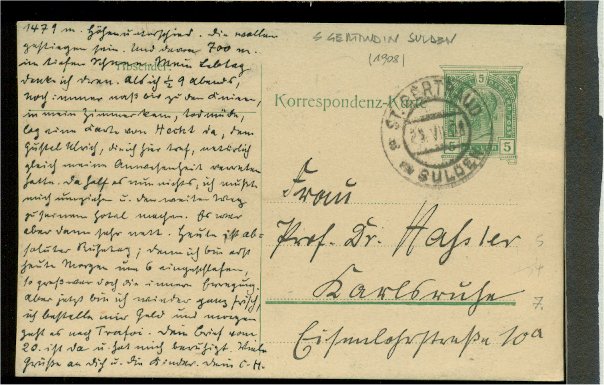 1479 m. Höhenunterschied. Die wollen
gestiegen sein. Und davon 700 m.
im tiefen Schnee. Mein Lebtag
denk ich dran. Als ich ½ 9 abends,
noch immer naß bis zu den Knieen,
in mein Zimmer kam, todmüde,
lag eine Karte von Hecht da, dem
ich hier traf, natürlich
gleich meine Anwesenheit verraten
hatte. Da half es nun nichts, ich mußte
mich umziehn u. den weiten Weg
zu ihrem Hotel machen. Es war
aber dann sehr nett. Heute ist ab-
soluter Ruhetag; denn ich bin erst
heute Morgen um 6 eingeschlafen,
so groß war doch die innere Erregung.
Aber jetzt bin ich wieder ganz frisch,
ich bestelle nur Geld und morgen
geht es nach Trafoi. Dein Brief vom
20. ist da u. hat mich beruhigt. Viele
Grüße an dich u. die Kinder. Dein E. H.
Absender
S GERTRUD IN SULDEN
(1908)
Korrespondenz-Karte
5 5
5 5
ST. GERTRAUD
SULDEN
Frau
Prof. Dr. Haßler
Karlsruhe
Eisenlohrstraße 10a
7.